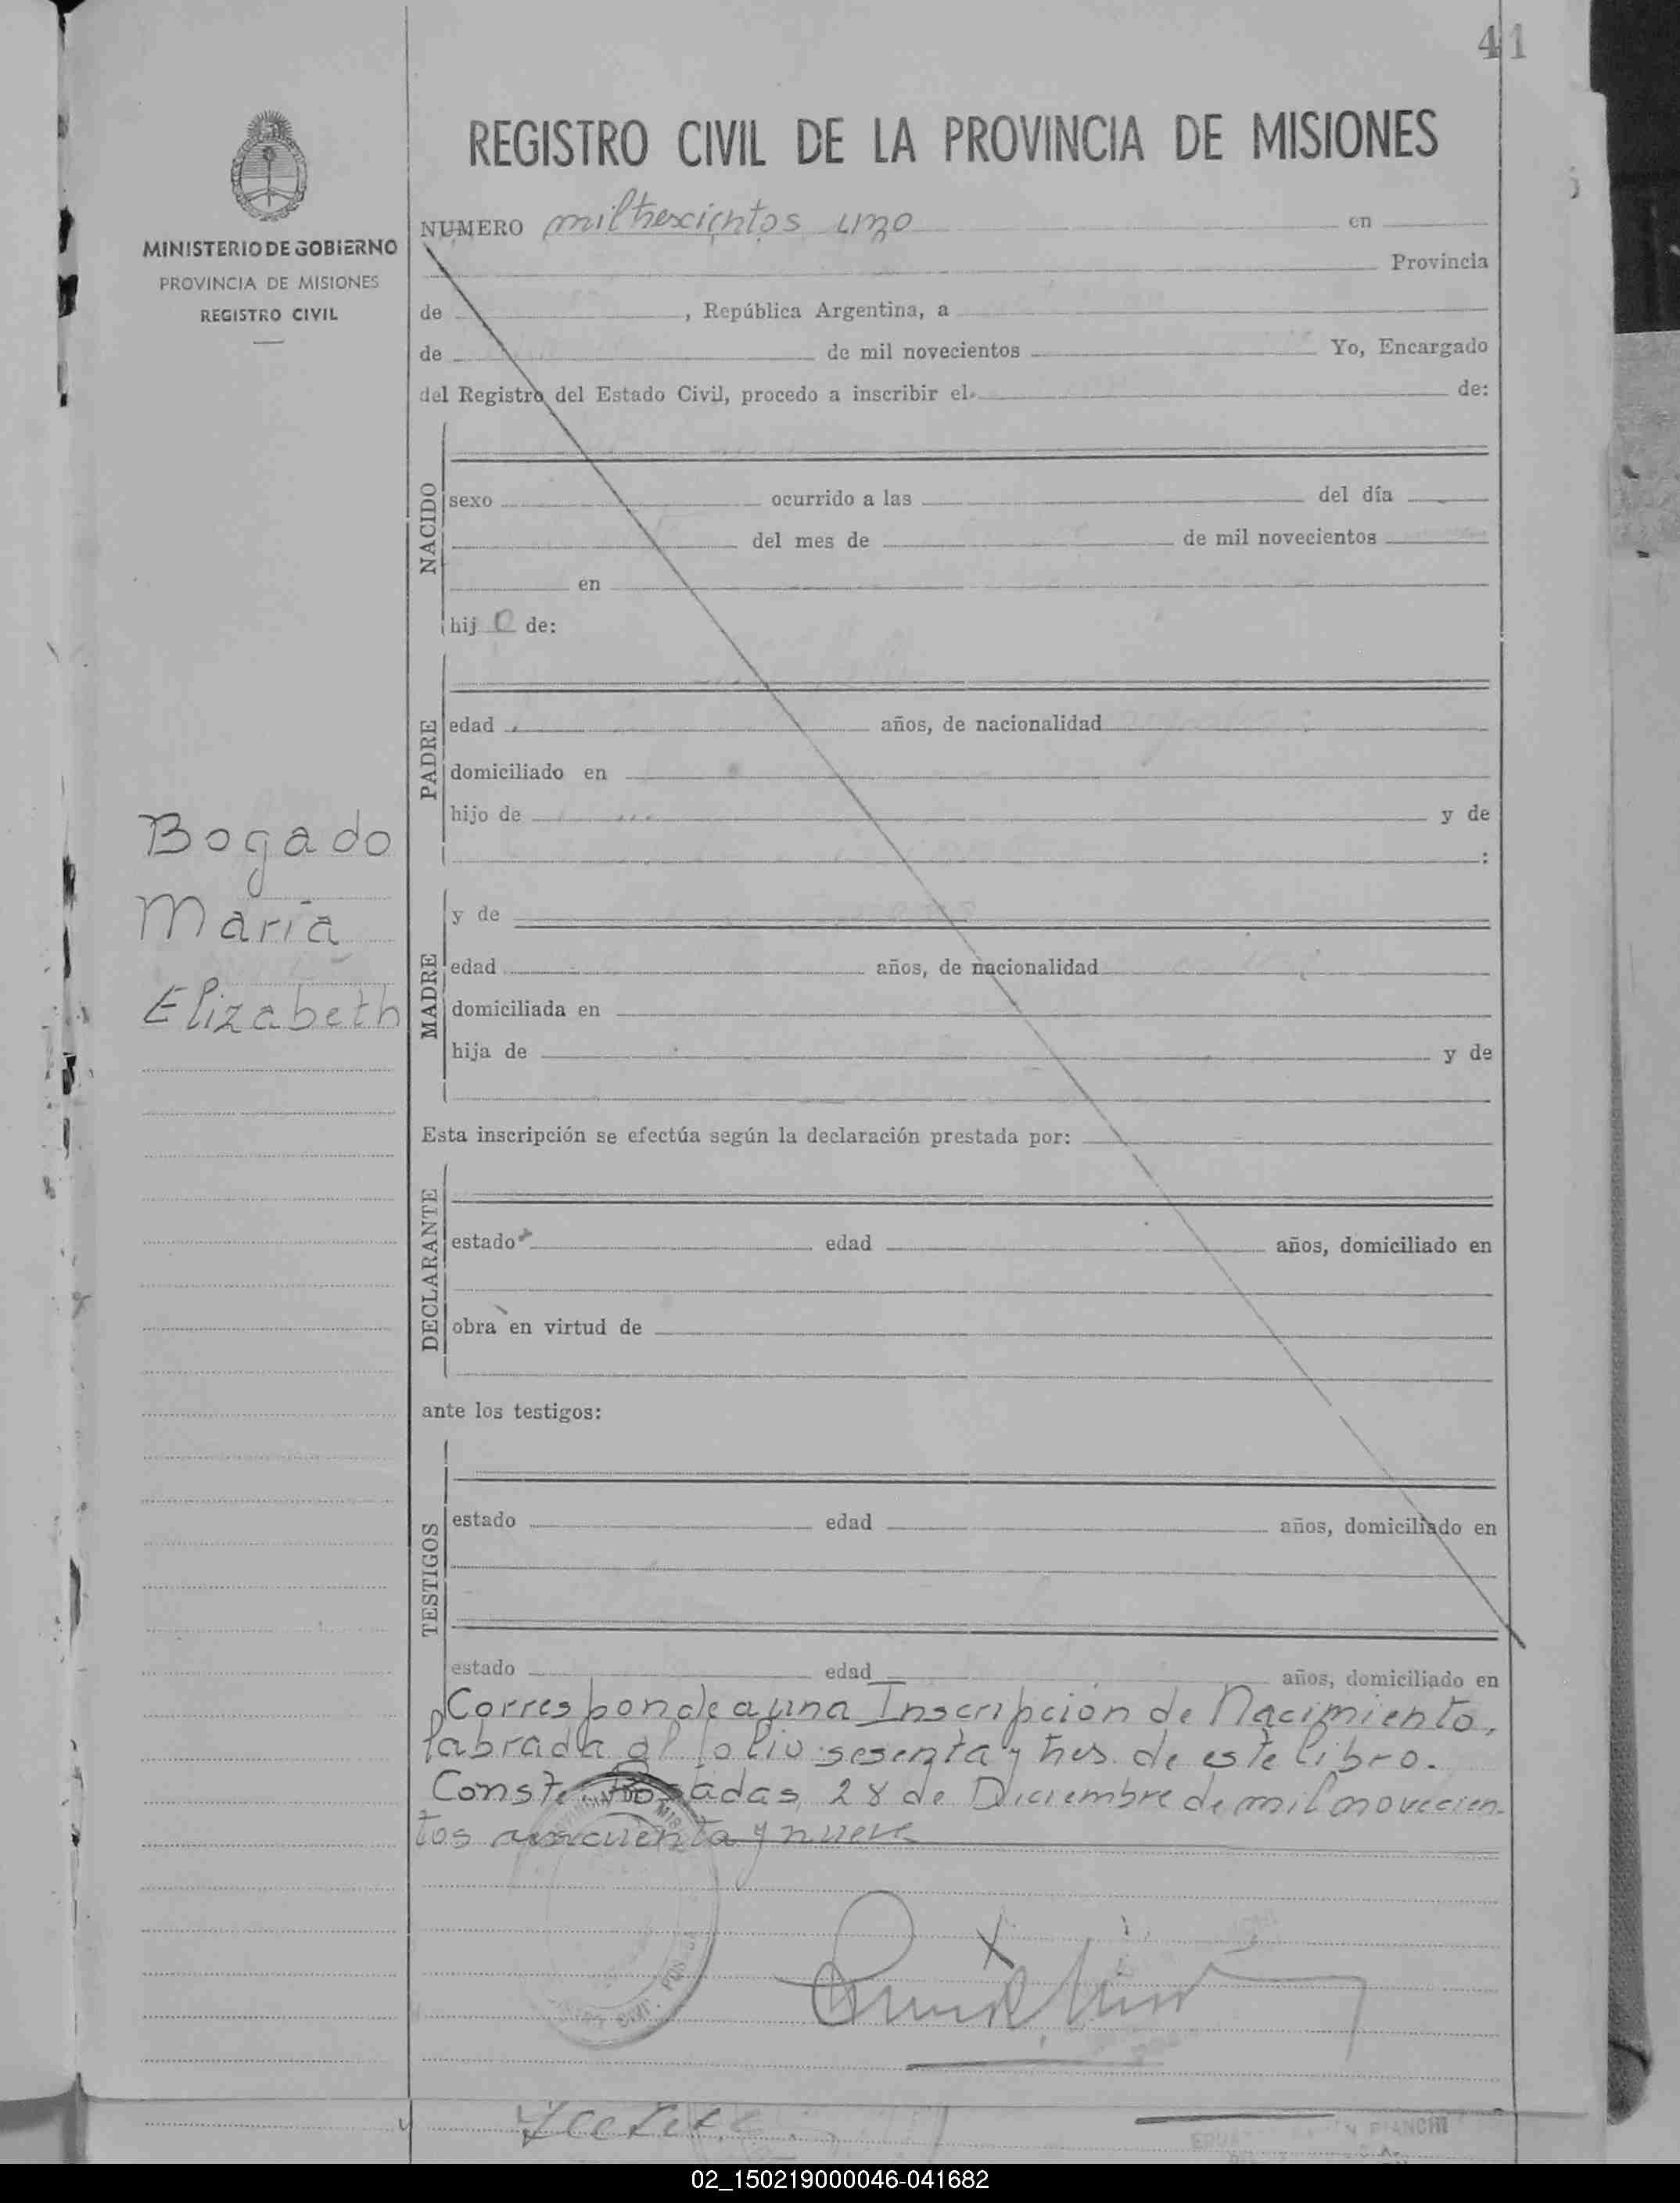 41
REGISTRO CIVIL DE LA PROVINCIA DE MISIONES
MINISTERIO DE GOBIERNO
PROVINCIA DE MISIONES
REGISTRO CIVIL
NUMERO miltrescientos uno en
Provincia
de , República Argentina, a
de de mil novecientos Yo, Encargado
del Registro del Estado Civil, procedo a inscribir el de:
NACIDO
sexo ocurrido a las del día
del mes de de mil novecientos
en
hij o de:
PADRE
edad años, de nacionalidad
domiciliado en
hijo de y de
:
Bogado
María
Elizabeth
MADRE
y de
edad años, de nacionalidad
domiciliada en
hija de y de
Esta inscripción se efectúa según la declaración prestada por:
DECLARANTE
estado edad años, domiciliado en
obra en virtud de
ante los testigos:
TESTIGOS
estado edad años, domiciliado en
estado edad años, domiciliado en
Corresponde a una Inscripción de Nacimiento,
labrada al folio sesenta y tres de este libro.
Conste. Posadas, 28 de Diciembre de mil novecien-
tos cincuenta y nueve
PIANCHI
02_150219000046-041682